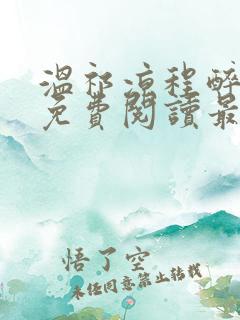 溫祁涼程醉
免費閱讀最
悟了空
未经同意禁止转载